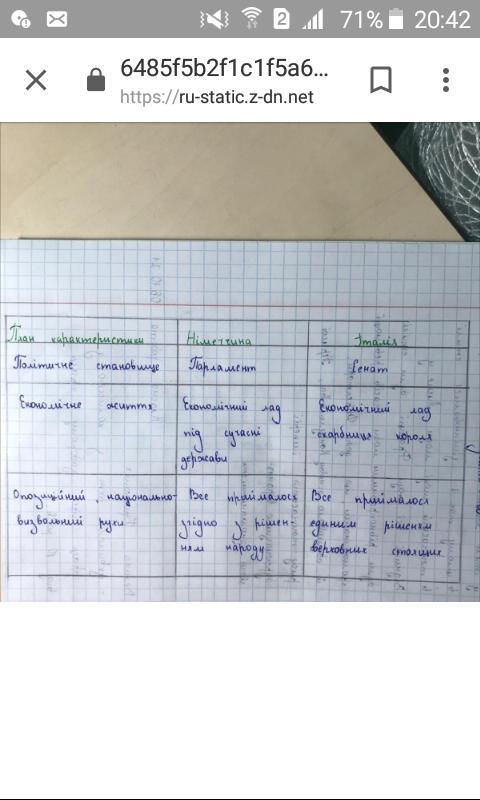 2
71%
20:42
6485f5b2f1c1f5a6...
https://ru-static.z-dn.net
План характеристики
Німеччина
Італія
Політичне становище
Парламент
Сенат
Економічне життя
Економічний лад
під сучасні
держави
Економічний лад
скарбниця короля
Опозиційний, національно-
визвольний рухи
Все приймалося
згідно з рішен-
ням народу
Все приймалося
єдиним рішенням
верховних столиць